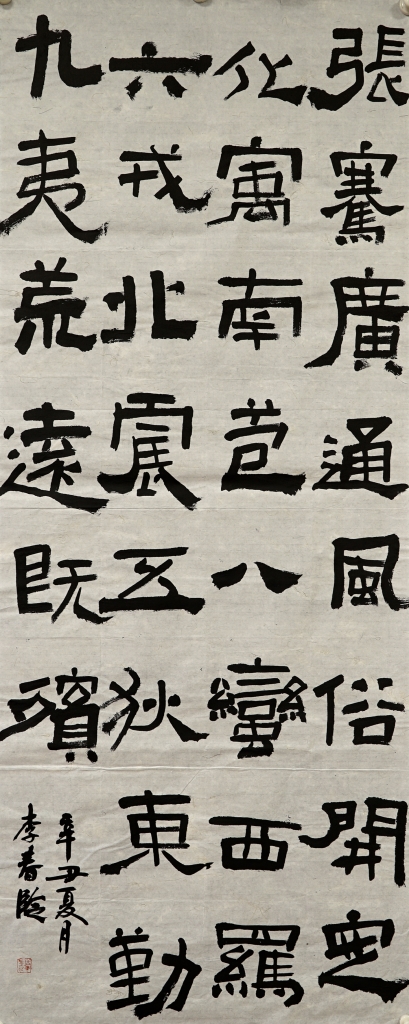 張騫廣通風俗開定
化寓南苞八蠻西羈
六戎北震五狄東勤
九夷荒遠既殯
辛丑夏月
李春